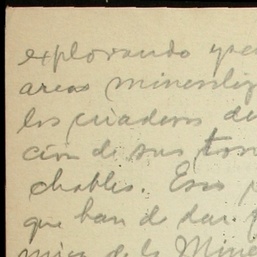 explorando
areas mineraliz
los criaderos de
ción de sus, ton
chables. Esos p
que han de dar f
mica de la Mine